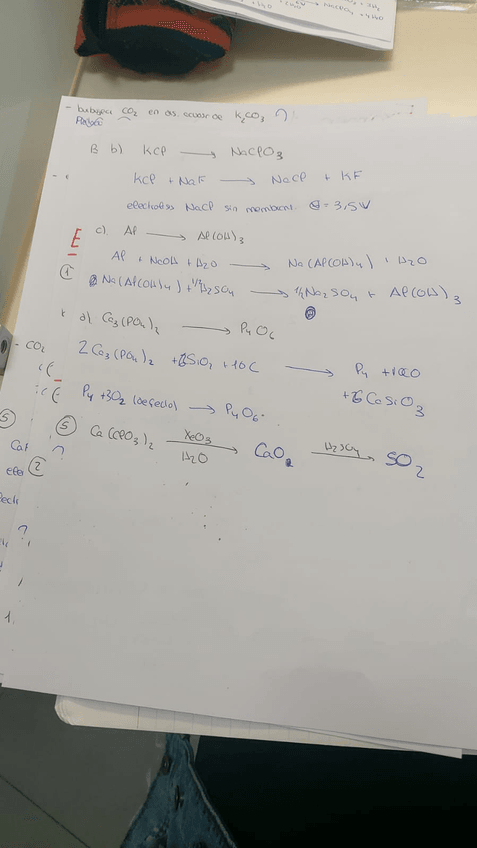 - burbujear CO2 en dis. acuosa de K2CO3 ?
B b) KCl → NaClO3
KCl + NaF → NaCl + KF
electrolisis NaCl sin membrana = 3,5V
E c) Al → Al(OH)3
Al + NaOH + H2O → Na(Al(OH)4) + H2O
① Na(Al(OH)4) + 1/2 H2SO4 → 1/2 Na2SO4 + Al(OH)3
d) Ca3(PO4)2 → P4O6
- CO2
2 Ca3(PO4)2 + 6SiO2 + 10C → P4 + 10CO
+ 6 CaSiO3
P4 + 3O2 (defecto) → P4O6.
⑤ ⑤ Ca(ClO3)2 XeO3 H2O → CaO2 H2SO4 → SO2
Cat ?
②
?
1.